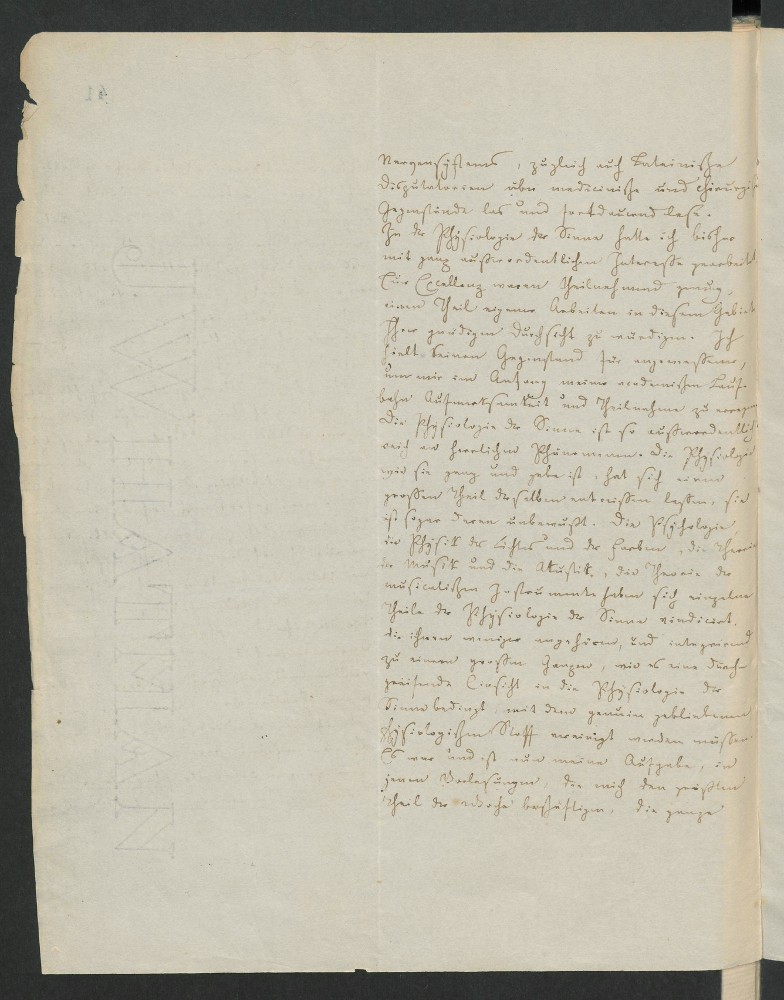 41
Nervensystems, zugleich auch Lateinische
Disputatorien über medicinische und chirurgis
Gegenstände las und fortdaurend lese.
In der Physiologie der Sinne hatte ich bisher
mit ganz außerordentlichem Interesse gearbeitet
Eur Excellenz waren theilnehmend genug,
einen Theil eigener Arbeiten in diesem Gebiete
Ihrer gnädigen Durchsicht zu würdigen. Ich
hielt keinen Gegenstand für angemessener,
um mir im Anfang meiner academischen Lauf-
bahn Aufmerksamkeit und Theilnahme zu erregen
Die Physiologie der Sinne ist so außerordentlich
reich an herrlichen Phänomenen. Die Physiologie
wie sie gang und gebe ist, hat sich einen
grossen Theil derselben entreissen lassen, sie
ist sogar deren unbewußt. Die Psychologie,
die Physik des Lichtes und der Farben, die Theorie
der Musik und die Akustik, die Theorie der
musicalischen Instrumente haben sich einzelne
Theile der Physiologie der Sinne vindicirt,
die ihnen weniger angehören, und integrirend
zu einem großen Ganzen, wie es eine durch-
greifende Einsicht in die Physiologie der
Sinne bedingt, mit dem genuin gebliebenen
physiologischen Stoff vereinigt werden müssen.
Es war und ist nun meine Aufgabe, in
jenen Vorlesungen, die mich den größten
Theil der Woche beschäftigen, die ganze
J WHATMAN